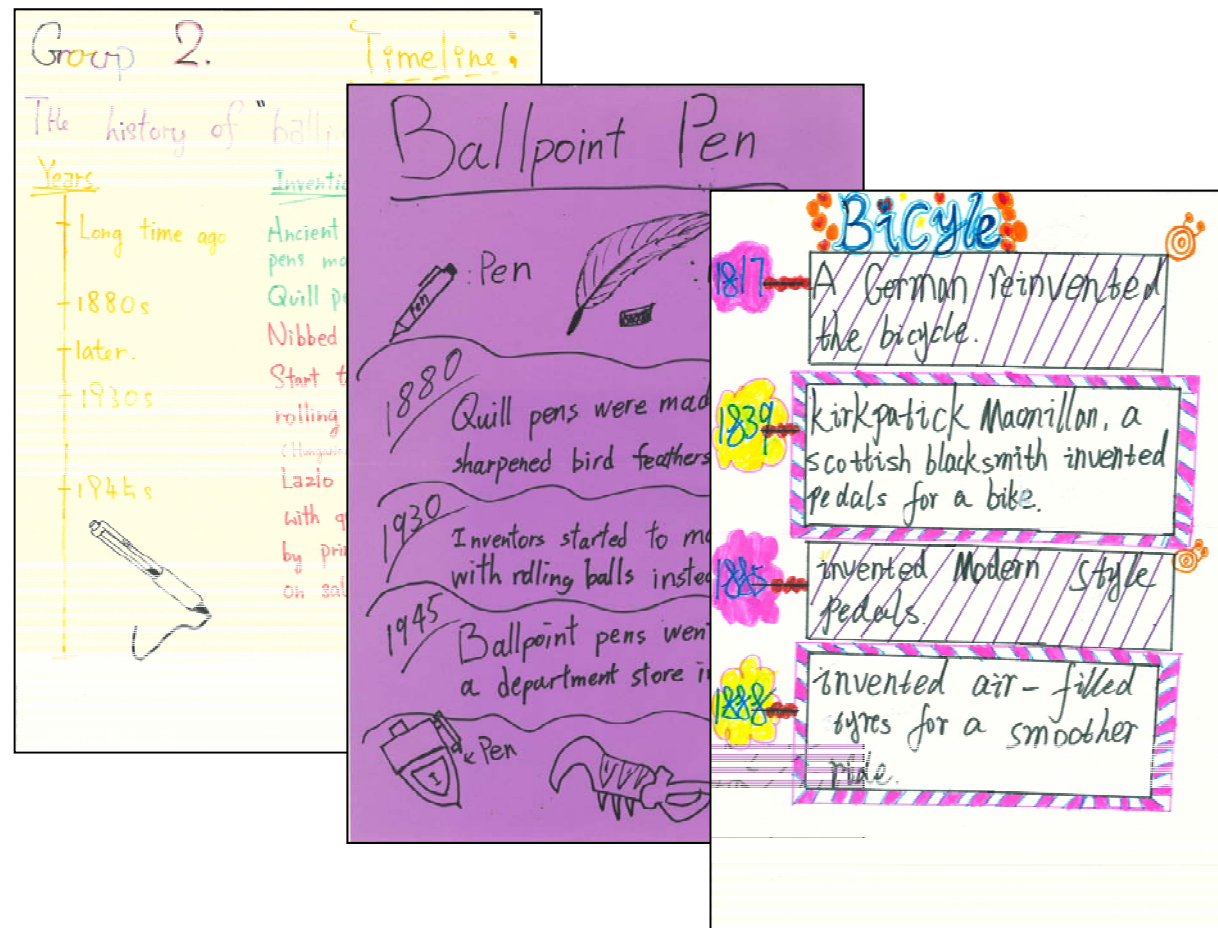 Group 2.
Timeline:
The history of "ballp
Years
Inventio
Long time ago
Ancient
pens ma
1880s
Quill pe
later.
Nibbed
1930s
Start t
rolling
(Hungaria
1945s
Lazlo
with q
by pri
on sal
Ballpoint Pen
: Pen
Pen
:
1880
Quill pens were mad
sharpened bird feathers
1930
Inventors started to mo
with rolling balls instea
1945
Ballpoint pens wen
a department store i
Pen
I
Bicyle
1817
A German reinvented
the bicycle.
1839
kirkpatick Macmillan, a
scottish blacksmith invented
pedals for a bike.
1885
invented Modern style
pedals.
1888
invented air-filled
tyres for a smoother
ride.